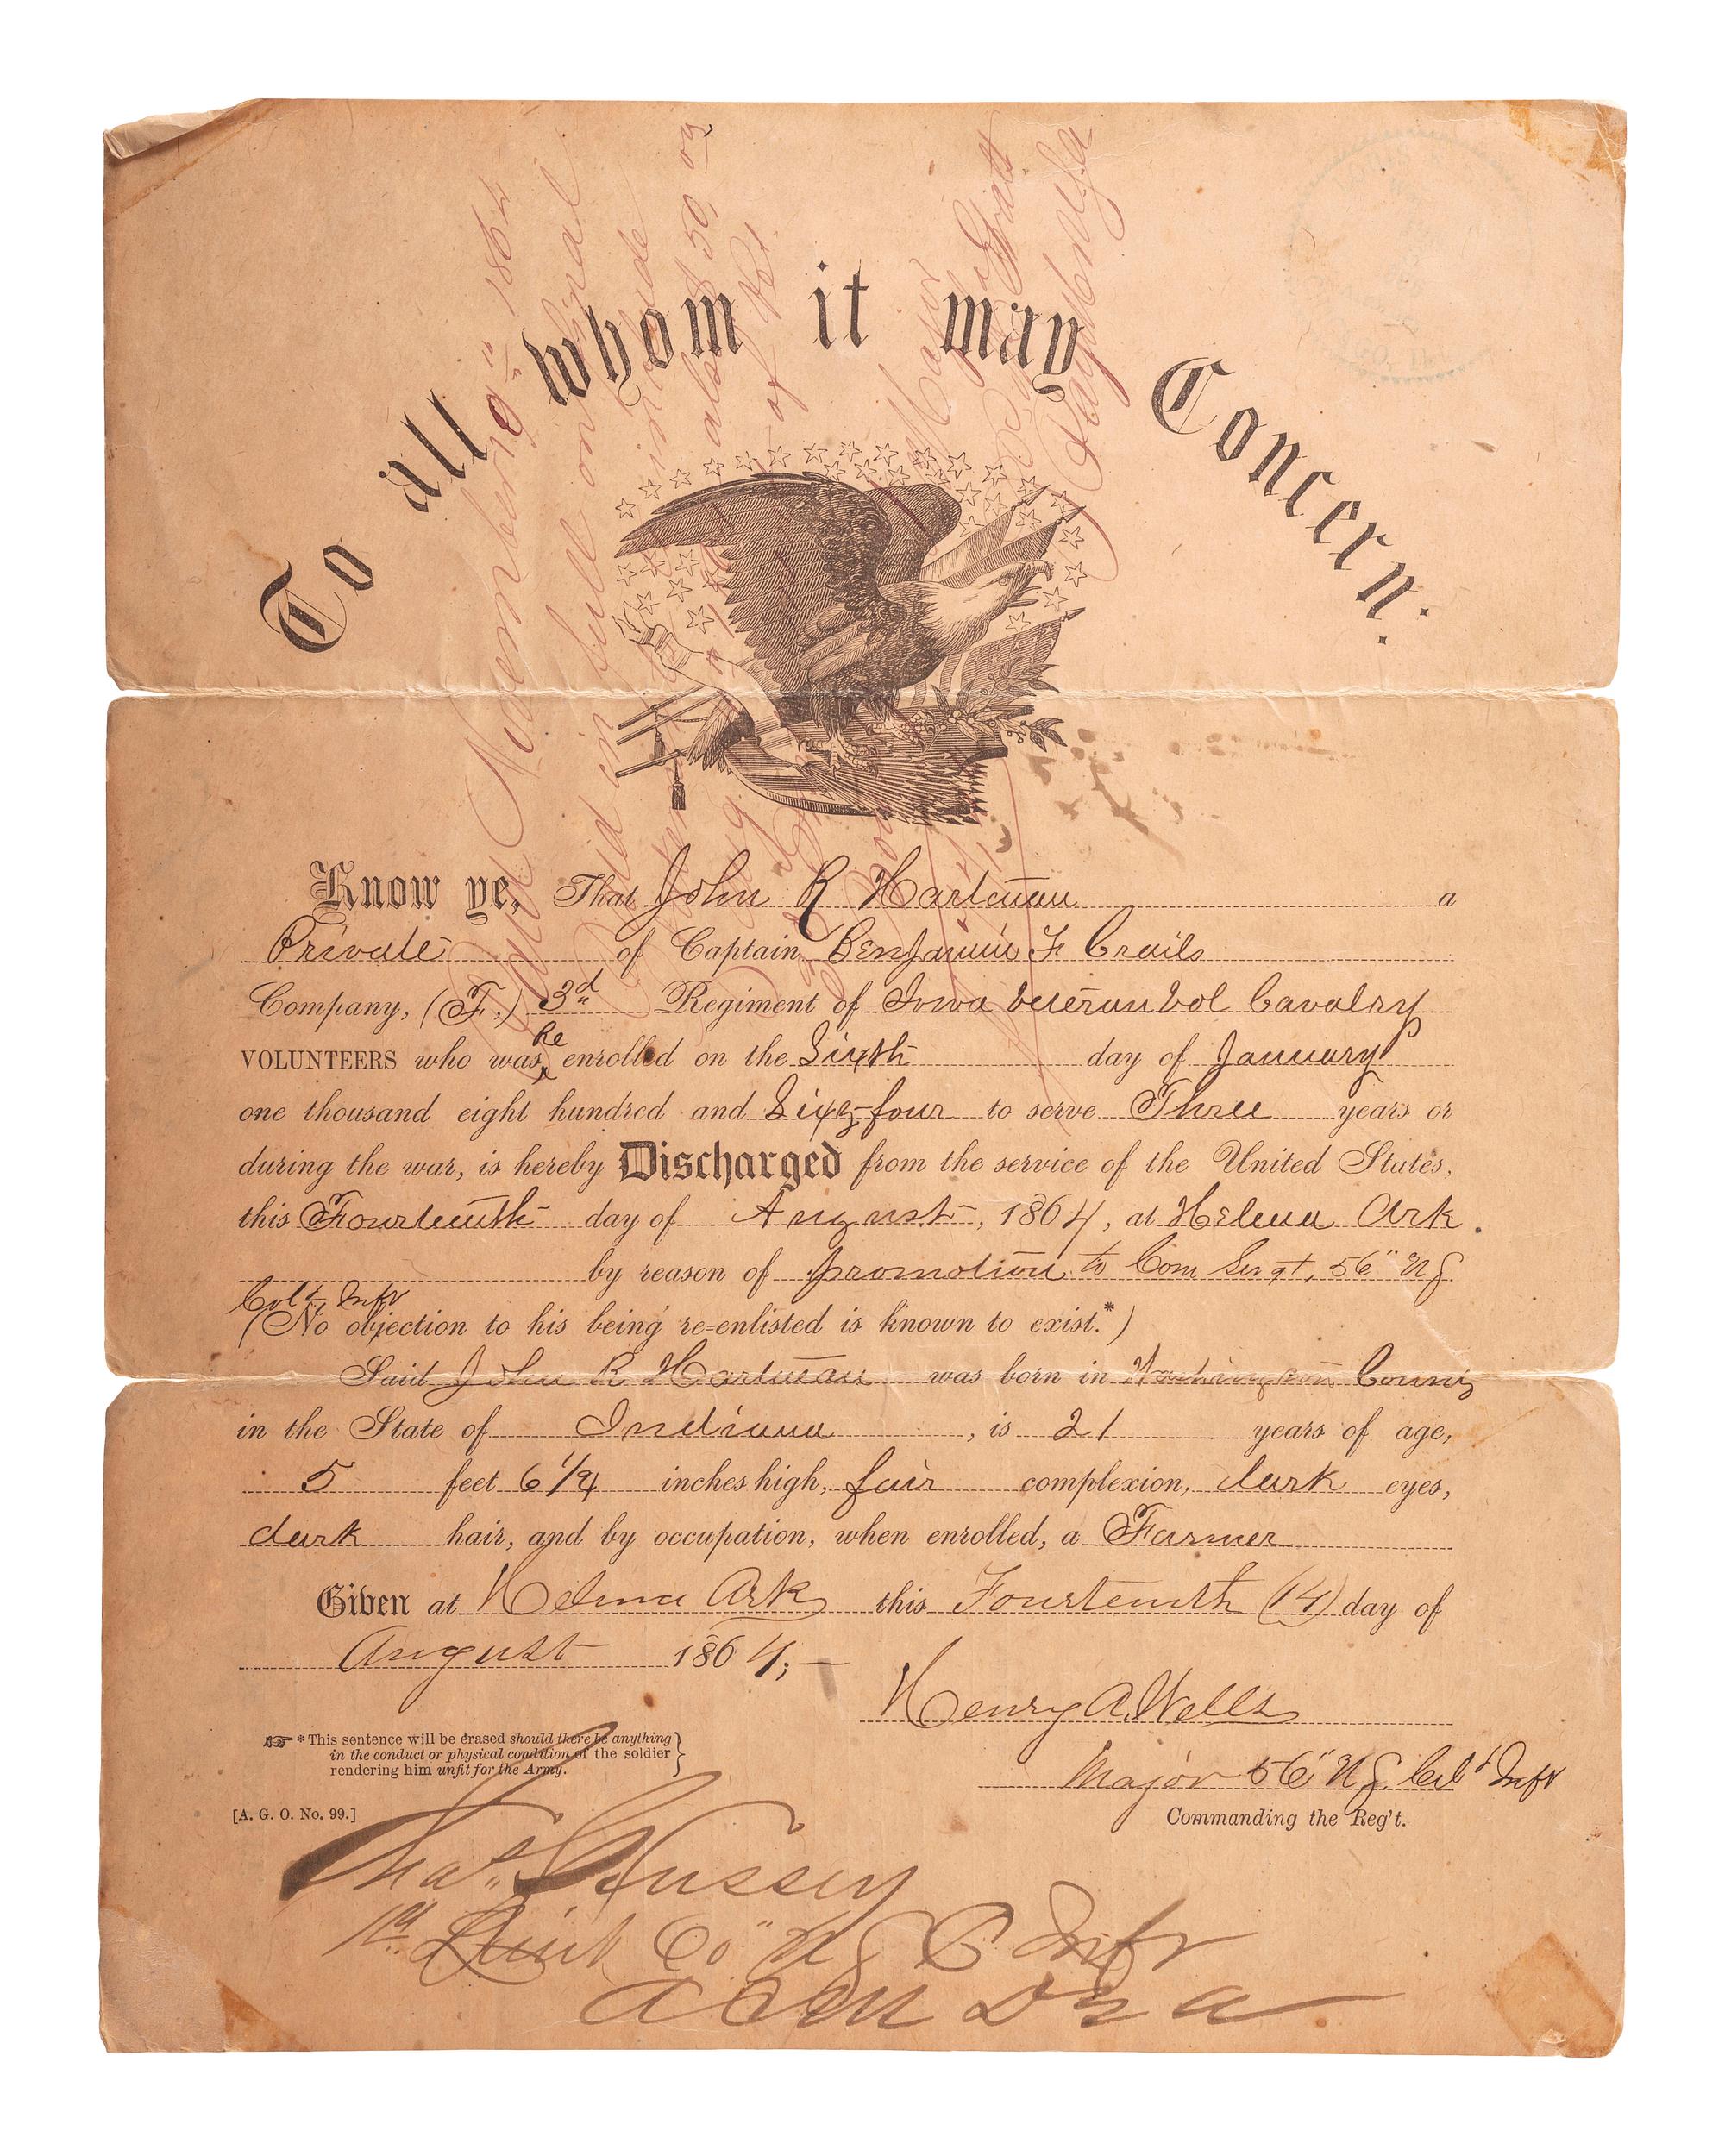 To all whom it may Concern.
Know ye, That John R Hartman a
Private of Captain Benjamin F Crails
Company, (F,) 3d Regiment of Iowa veteran vol Cavalry
VOLUNTEERS who was Re enrolled on the Sixth day of January
one thousand eight hundred and Sixty four to serve Three years or
during the war, is hereby Discharged from the service of the United States,
this Fourteenth day of August, 1864, at Helena Ark.
by reason of promotion to Com Sergt, 56" U S
Cold Infr
(No objection to his being re-enlisted is known to exist.*)
Said John R Hartman was born in Washington County
in the State of Indiana, is 21 years of age,
5 feet 6 1/4 inches high, fair complexion, dark eyes,
dark hair, and by occupation, when enrolled, a Farmer
Given at Helena Ark this Fourteenth (14) day of
August 1864;
Henry A. Wells
Major 56" U S Cold Infr
Commanding the Reg't.
*This sentence will be erased should there be anything
in the conduct or physical condition of the soldier
rendering him unfit for the Army.
[A. G. O. No. 99.]
Thos. Hussey
1st Lieut 60" U S C Infr
November 10" 1864
Paid in full on final
Major
Paymr USA